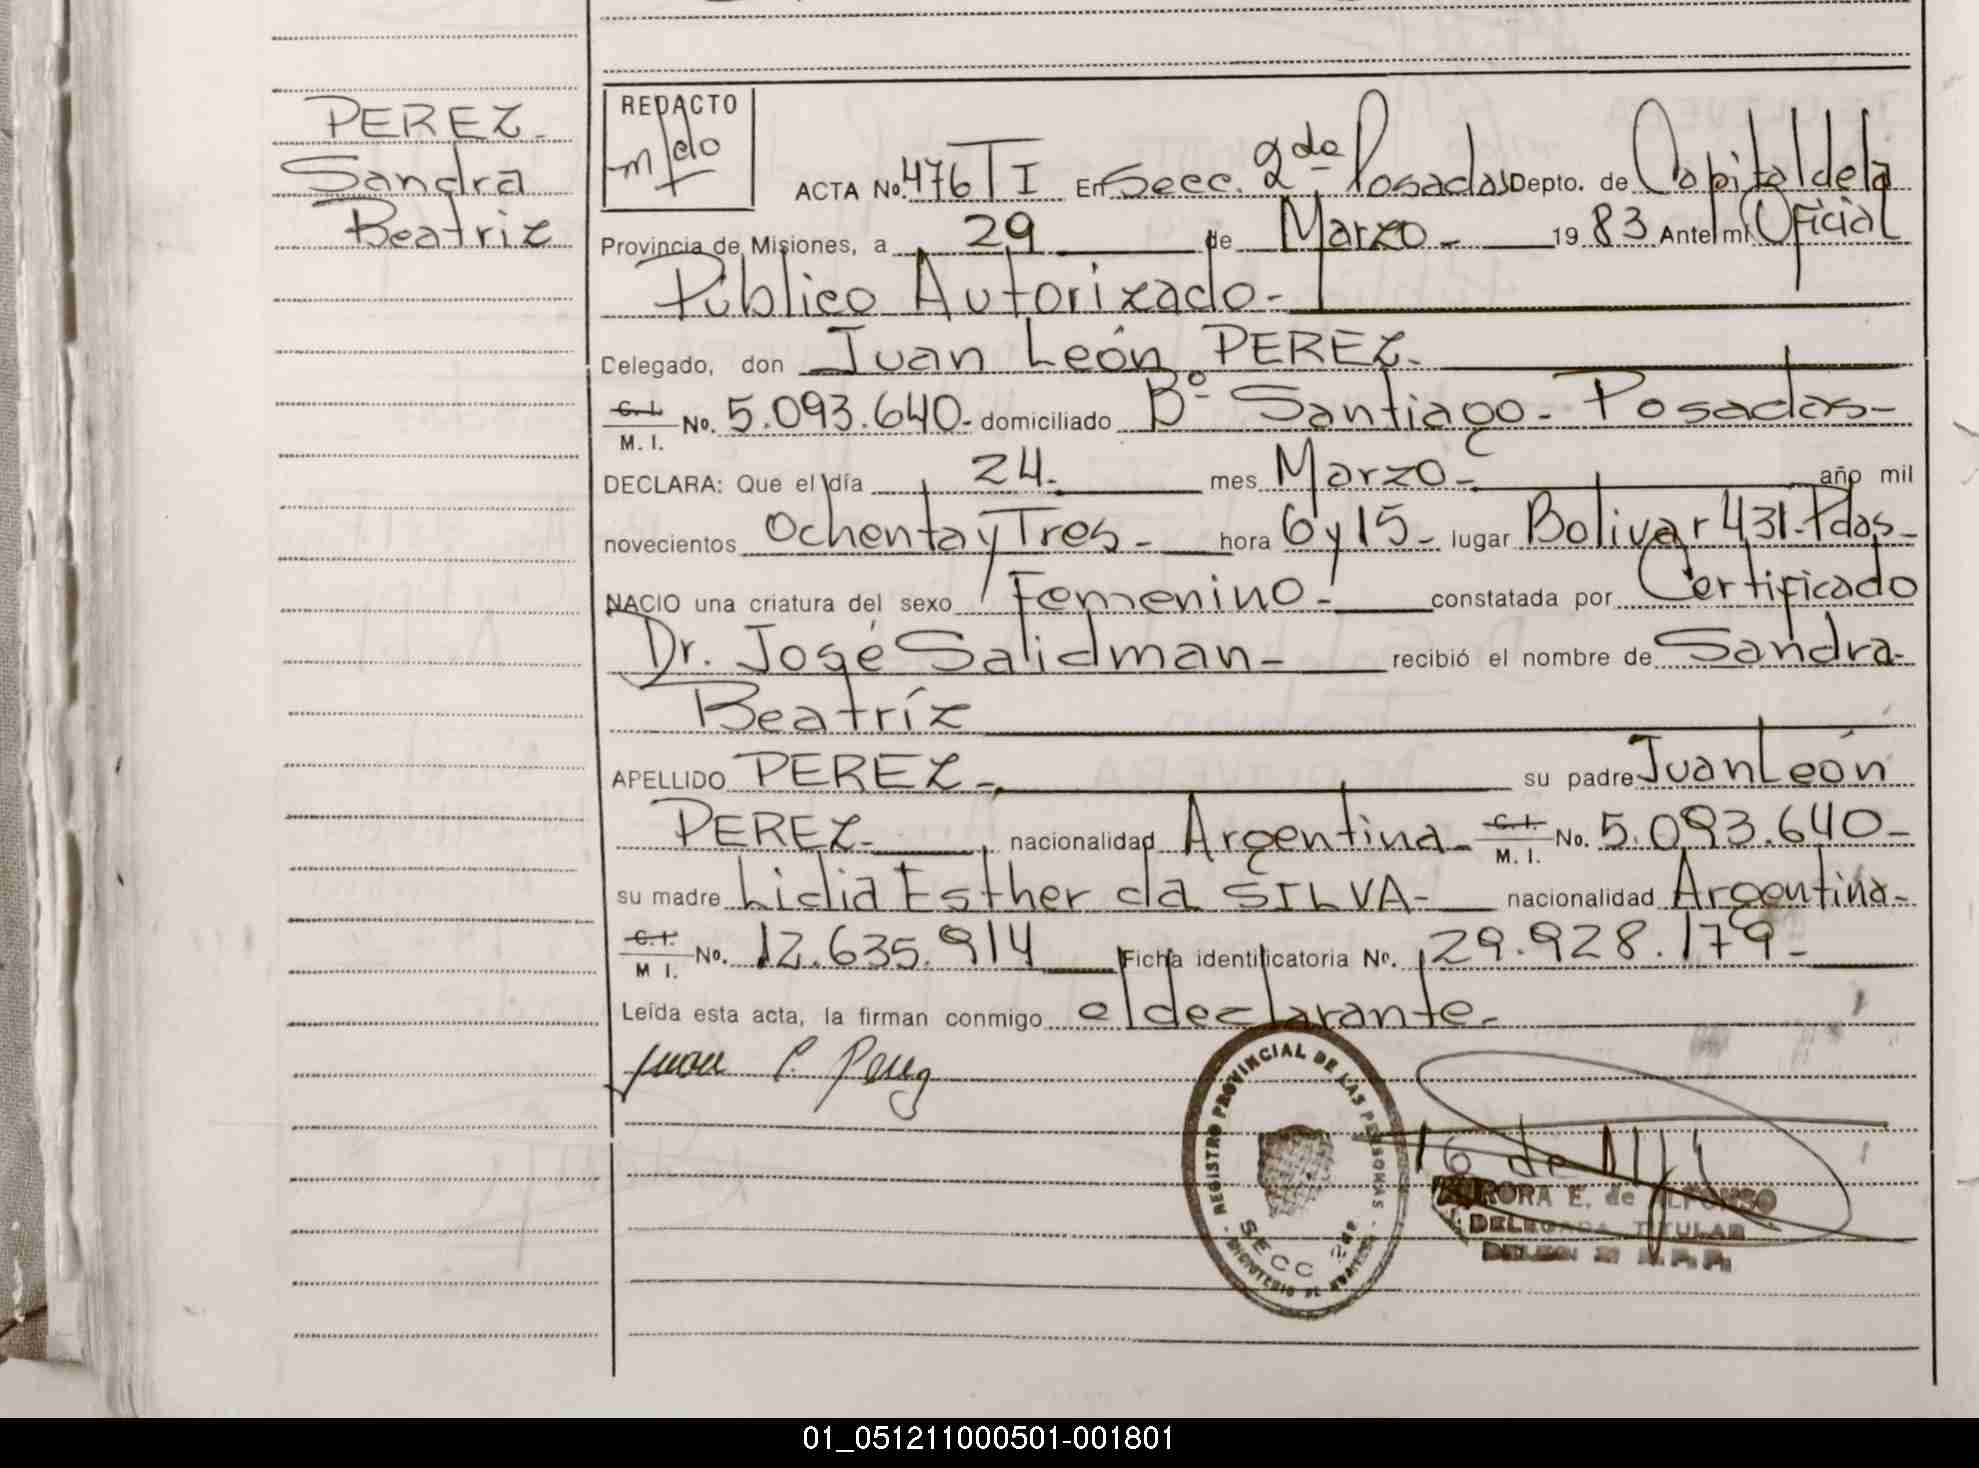 PEREZ-
Sandra
Beatriz
REDACTO
ACTA No. 476 T I En Secc. 2da Posadas Depto. de Capital de la
Provincia de Misiones, a 29 de Marzo - 19 83 Ante mi Oficial
Público Autorizado-
Delegado, don Juan León PEREZ-
C. I. / M. I. No. 5.093.640- domiciliado Bº Santiago - Posadas-
DECLARA: Que el día 24- mes Marzo- año mil
novecientos Ochenta y Tres- hora 6 y 15- lugar Bolivar 431-Pdas-
NACIO una criatura del sexo Femenino- constatada por Certificado
Dr. José Salidman- recibió el nombre de Sandra-
Beatríz
APELLIDO PEREZ- su padre Juan León
PEREZ- nacionalidad Argentina- C. I. / M. I. No. 5.093.640-
su madre Lidia Esther da SILVA- nacionalidad Argentina-
C. I. / M I. No. 12.635.914 Ficha identificatoria No. 29.928.179-
Leída esta acta, la firman conmigo el declarante-
Juan L. Perez
REGISTRO PROVINCIAL DE LAS PERSONAS
SECC 2da
AURORA E. de ALFONSO
DELEGADA TITULAR
01_051211000501-001801